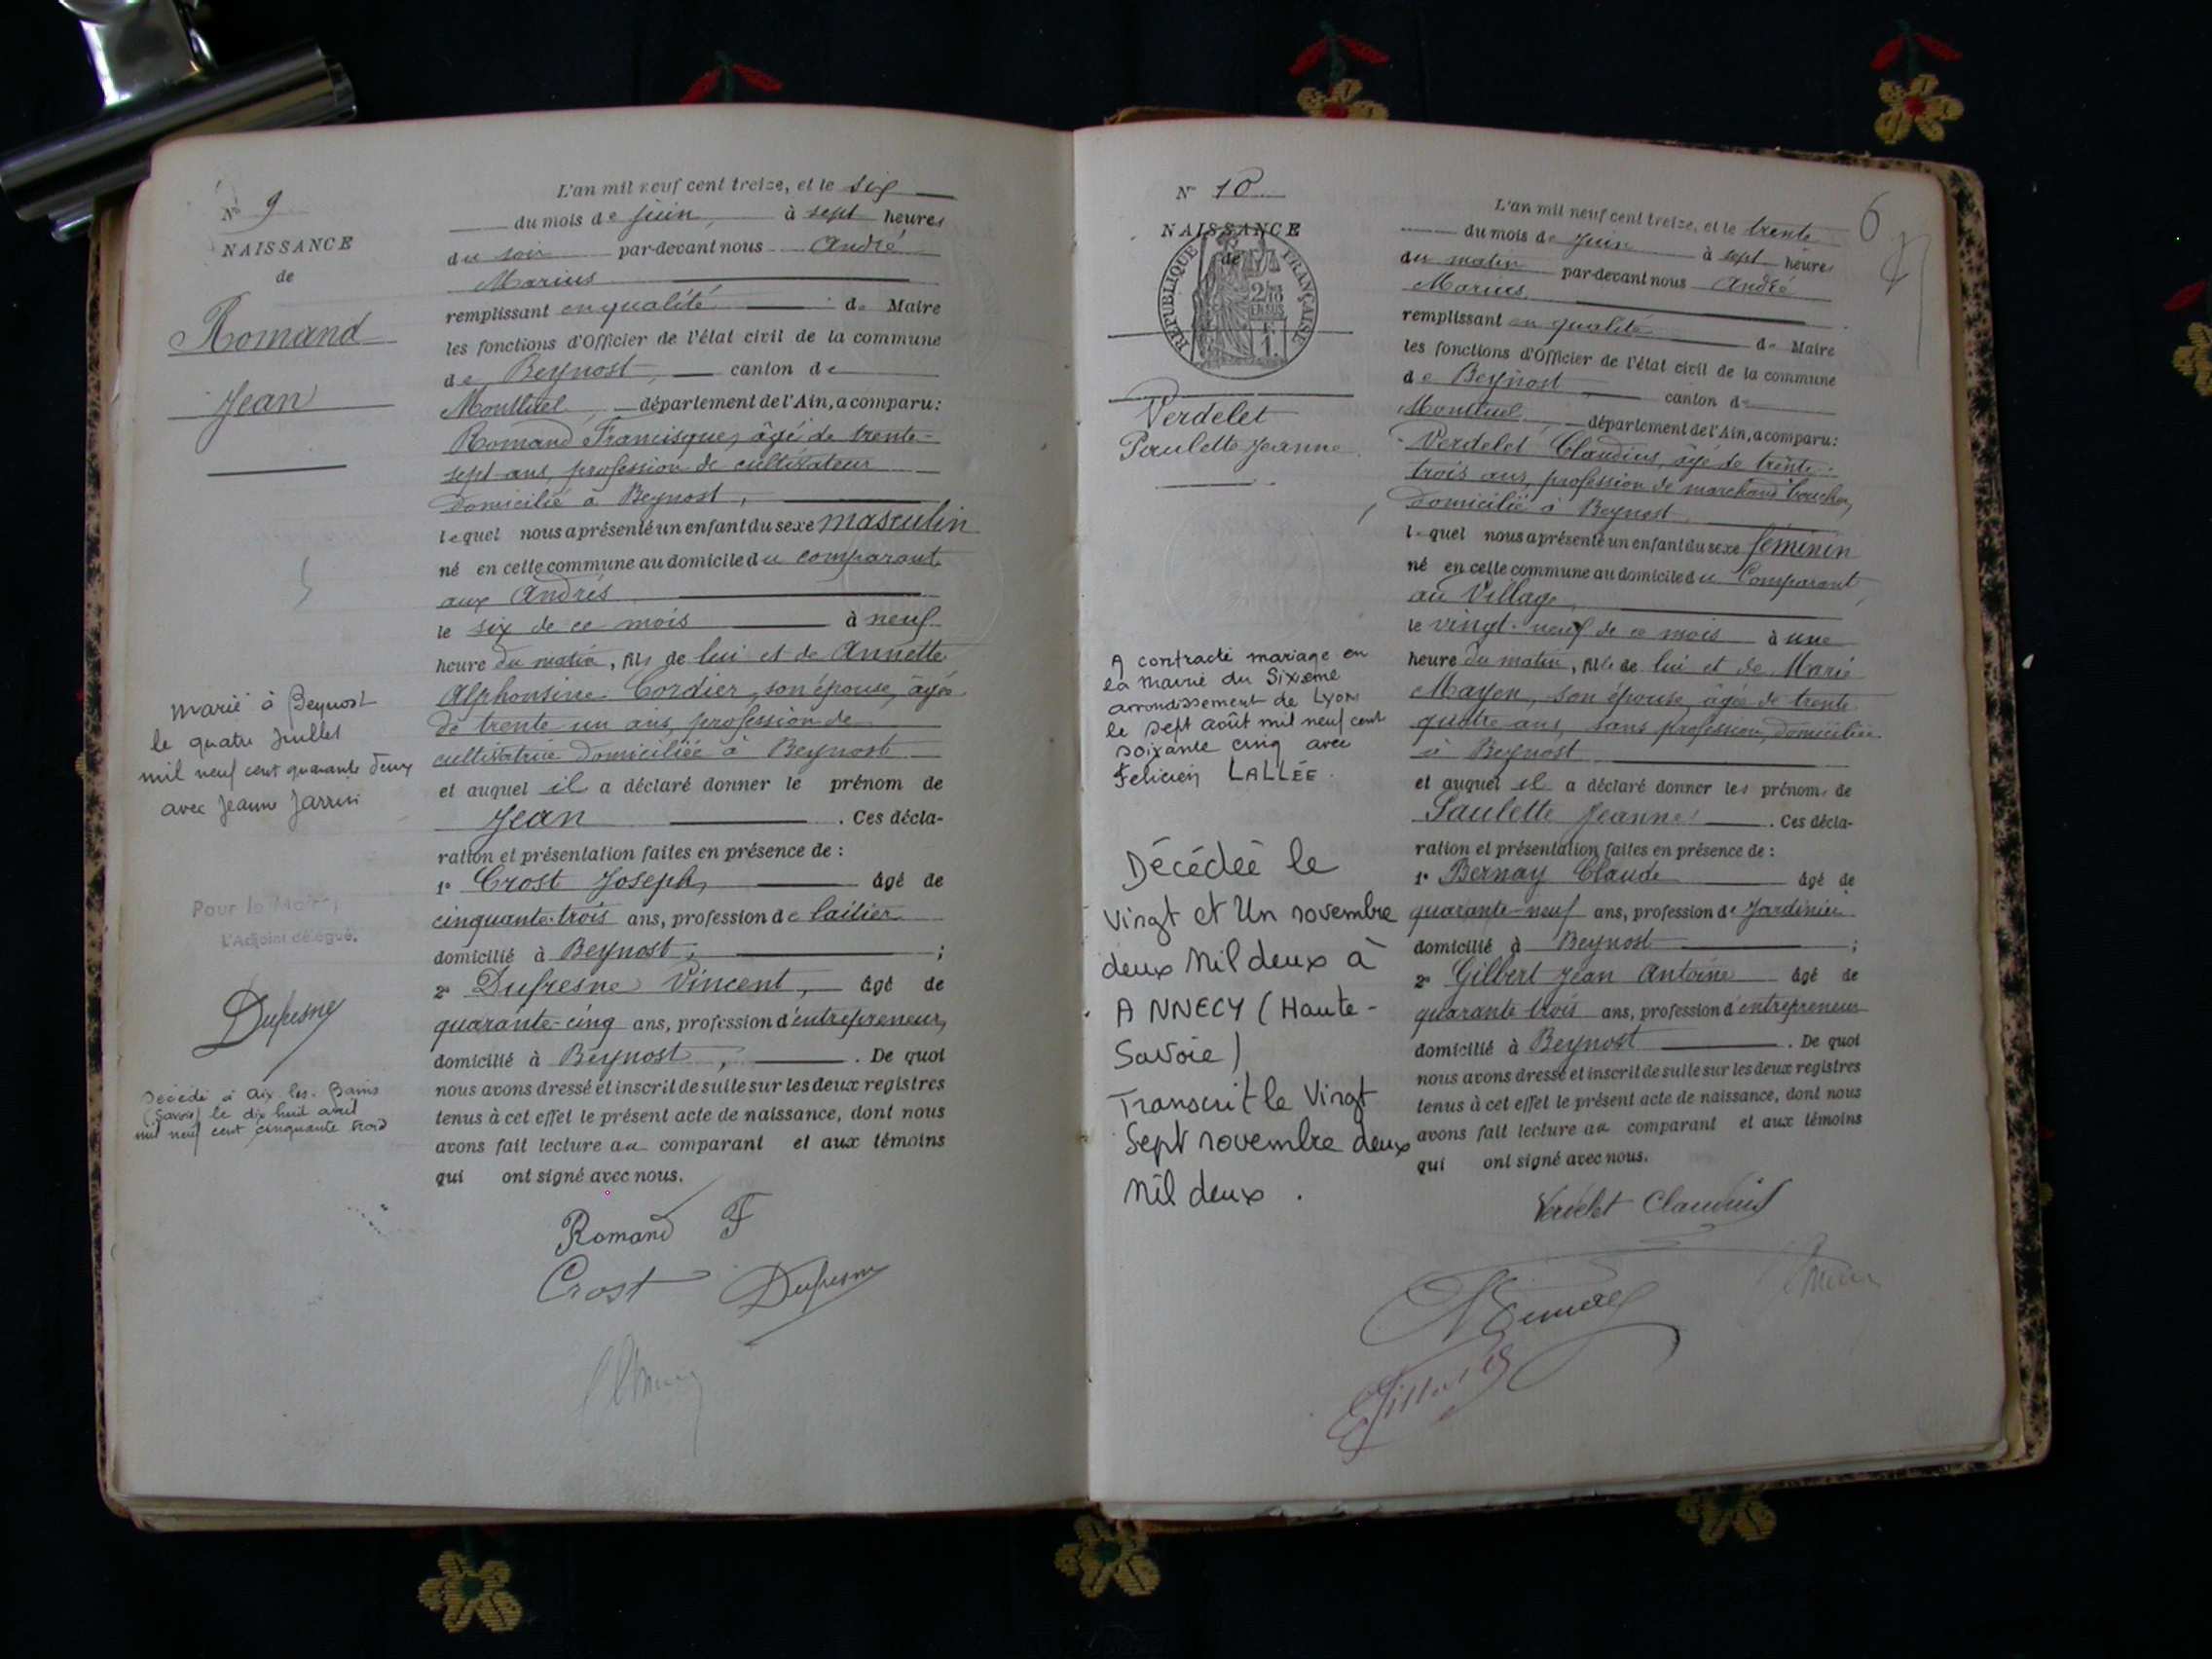 N° 9
NAISSANCE
de
Romand
Jean
marié à Beynost
le quatre Juillet
mil neuf cent quarante deux
avec Jeanne
Pour le Maire,
L'Adjoint délégué.
Dufresne
Décédé à Aix les-Bains
(Savoie) le dix huit avril
mil neuf cent cinquante trois
L'an mil neuf cent treize, et le six
du mois de juin, à sept heures
du soir par-devant nous André
Marius
remplissant en qualité de Maire
les fonctions d'Officier de l'état civil de la commune
de Beynost, canton de
Montluel, département de l'Ain, a comparu:
Romand Francisque, âgé de trente-
sept ans, profession de cultivateur
domicilié à Beynost,
lequel nous a présenté un enfant du sexe masculin
né en cette commune au domicile du comparant
aux Andrés
le six de ce mois à neuf
heure du matin, fils de lui et de Annette
Alphonsine Cordier, son épouse, âgée
de trente un ans, profession de
cultivatrice domiciliée à Beynost
et auquel il a déclaré donner le prénom de
Jean. Ces décla-
ration et présentation faites en présence de :
1° Crost Joseph, âgé de
cinquante-trois ans, profession de laitier
domicilié à Beynost, ;
2° Dufresne Vincent, âgé de
quarante-cinq ans, profession d'entrepreneur,
domicilié à Beynost, . De quoi
nous avons dressé et inscrit de suite sur les deux registres
tenus à cet effet le présent acte de naissance, dont nous
avons fait lecture au comparant et aux témoins
qui ont signé avec nous.
Romand F
Crost Dufresne
N° 10
NAISSANCE
de
REPUBLIQUE FRANÇAISE
2/10 EN SUS
1 F
Verdelet
Paulette Jeanne
A contracté mariage en
la mairie du Sixième
arrondissement de Lyon
le sept août mil neuf cent
soixante cinq avec
Felicien LALLÉE.
Décédeé le
vingt et Un novembre
deux Mil deux à
ANNECY (Haute-
Savoie)
Transcrit le Vingt
Sept novembre deux
Mil deux.
6
L'an mil neuf cent treize, et le trente
du mois de Juin à sept heures
du matin par-devant nous André
Marius
remplissant en qualité de Maire
les fonctions d'Officier de l'état civil de la commune
de Beynost, canton de
Montluel, département de l'Ain, a comparu:
Verdelet Claudius, âgé de trente-
trois ans, profession de marchand boucher,
domicilié à Beynost
lequel nous a présenté un enfant du sexe féminin
né en cette commune au domicile du Comparant
au Village,
le vingt-neuf de ce mois à une
heure du matin, fille de lui et de Marie
Mayen, son épouse, âgée de trente
quatre ans, sans profession, domiciliée
à Beynost
et auquel il a déclaré donner les prénoms de
Paulette Jeanne. Ces décla-
ration et présentation faites en présence de :
1° Bernay Claude âgé de
quarante-neuf ans, profession de Jardinier
domicilié à Beynost ;
2° Gilbert Jean Antoine âgé de
quarante trois ans, profession d'entrepreneur
domicilié à Beynost . De quoi
nous avons dressé et inscrit de suite sur les deux registres
tenus à cet effet le présent acte de naissance, dont nous
avons fait lecture au comparant et aux témoins
qui ont signé avec nous.
Verdelet Claudius